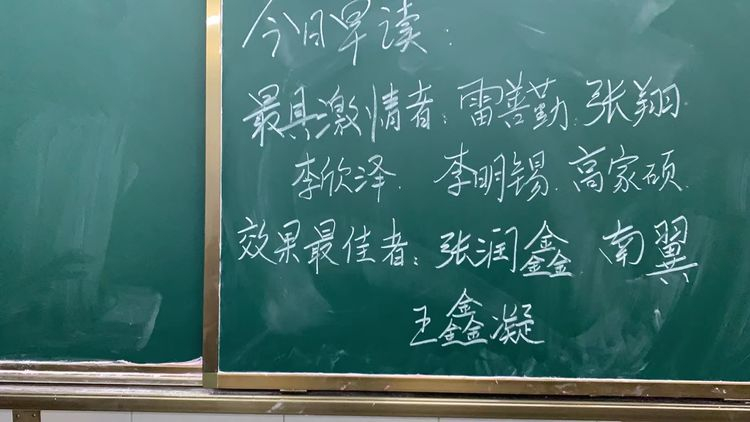 今日早读：
最具激情者：雷善勤.张翔.
李欣泽. 李明锡.高家硕.
效果最佳者：张润鑫.南翼
王鑫凝